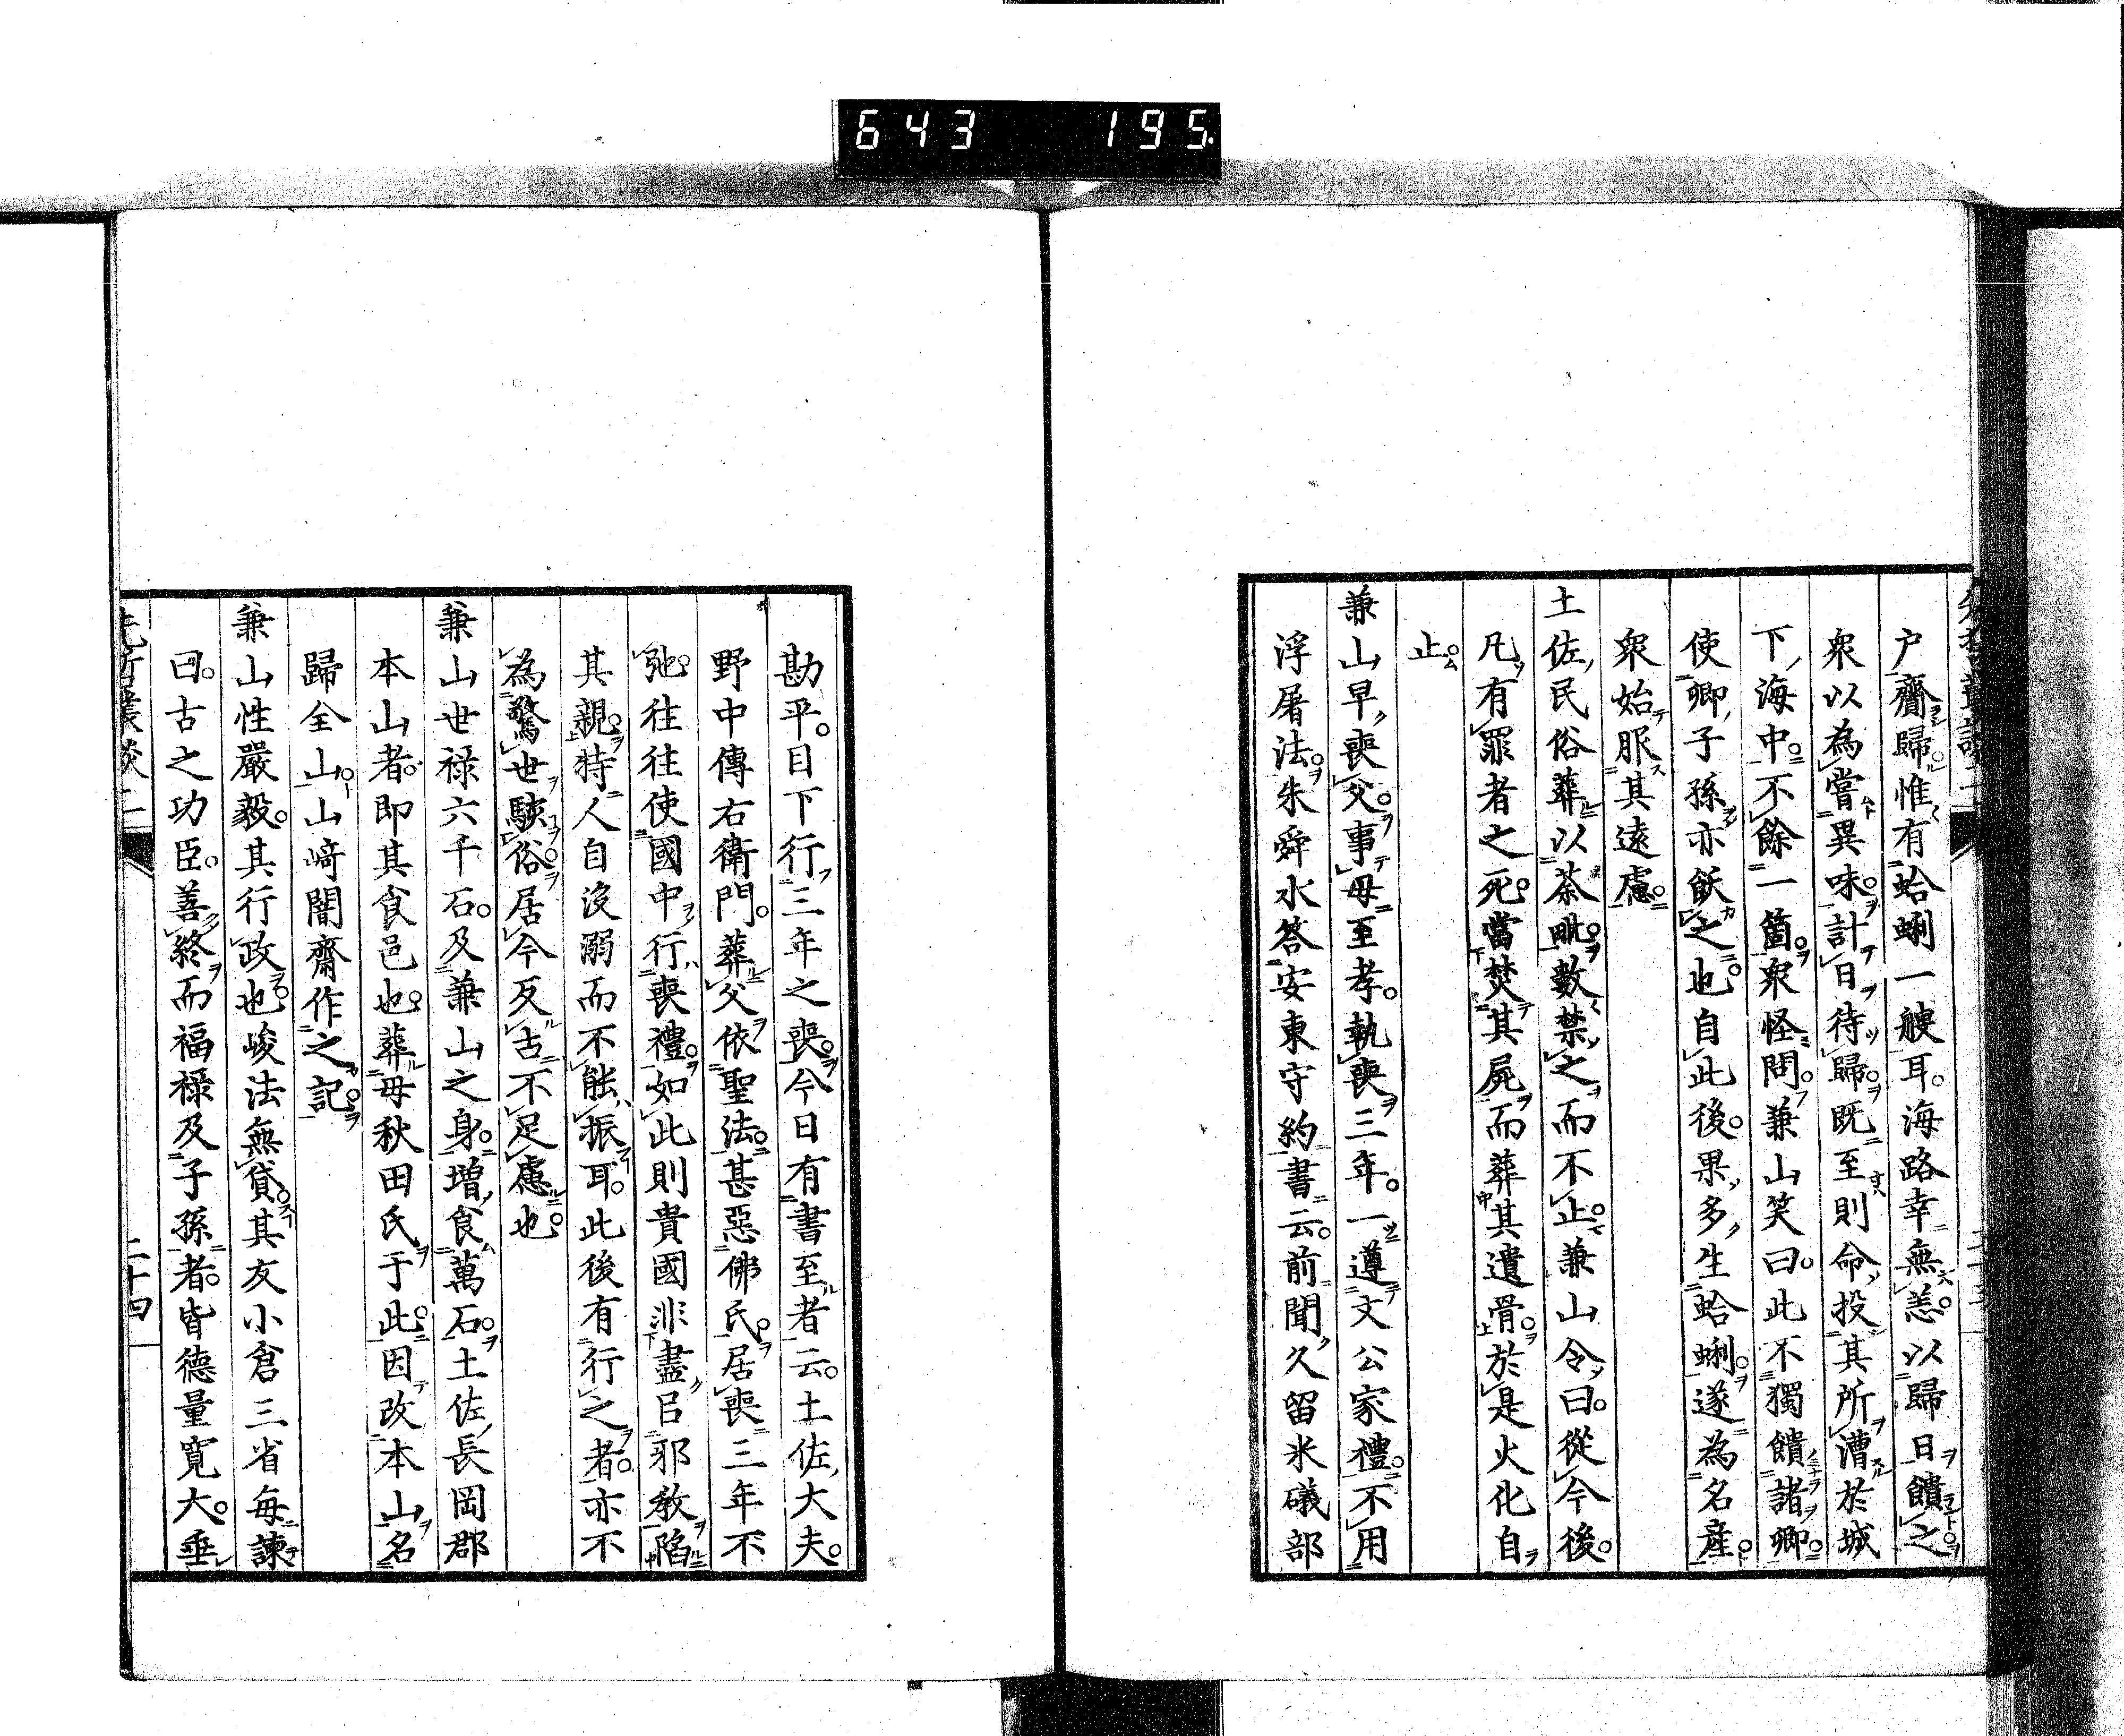 643 195
戸齎歸惟有蛤蜊一艘耳。海路幸無恙。以歸日饋之。
衆以為嘗異味。計日待歸。既至則命投其所漕於城
下海中。不餘一箇。衆怪問。兼山笑曰。此不獨饋諸卿。
使卿子孫亦飫之也。自此後。果多生蛤蜊。遂為名産。
衆始服其遠慮。
土佐民俗葬以荼毗。數禁之而不止。兼山令曰。從今後。
凡有罪者之死。當焚其屍而葬其遺骨。於是火化自
止。
兼山早喪父。事母至孝。執喪三年。一遵文公家禮。不用
浮屠法。朱舜水答安東守約書云。前聞久留米礒部
勘平。目下行三年之喪。今日有書至者云。土佐大夫。
野中傳右衛門。葬父依聖法。甚惡佛氏。居喪三年不
弛。往往使國中行喪禮。如此則貴國非盡呂邪敎陷
其親。特人自沒溺而不能振耳。此後有行之者。亦不
為驚世駭俗。居今反古不足慮也。
兼山世禄六千石。及兼山之身。増食萬石。土佐長岡郡
本山者。即其食邑也。葬母秋田氏于此。因改本山名
歸全山。山﨑闇齋作之記。
兼山性嚴毅。其行政也。峻法無貸。其友小倉三省每諫
曰。古之功臣。善終而福禄及子孫者。皆德量寛大。垂
先哲叢談二
二十四